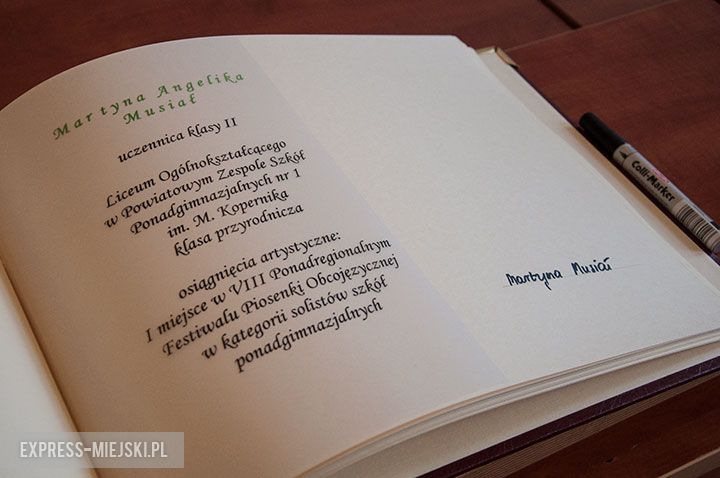 Martyna Angelika
Musiał
uczennica klasy II
Liceum Ogólnokształcącego
w Powiatowym Zespole Szkół
Ponadgimnazjalnych nr 1
im. M. Kopernika
klasa przyrodnicza
osiągnięcia artystyczne:
I miejsce w VIII Ponadregionalnym
Festiwalu Piosenki Obcojęzycznej
w kategorii solistów szkół
ponadgimnazjalnych
Martyna Musiał
Colli-Marker
EXPRESS-MIEJSKI.PL